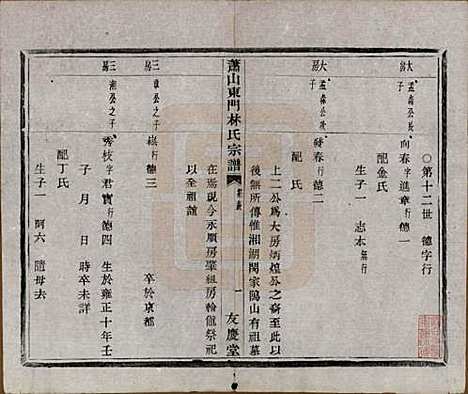 〇第十二世 德字行
大房 孟森公長子
向春字進章行德一
配金氏
生子一 志本無行
大房 孟森公次子
發春行德二
配 氏
上二公爲大房炳煌公之裔至此以
後無所傳惟湘湖閔家鴉山有祖墓
在焉現今永順房肇祖房輪值祭祀
以全祖誼
蕭山東門林氏宗譜
一
友慶堂
三房 公之子
棋行德三 卒於京都
三房 公之子
秀枝字君寶行德四 生於雍正十年壬
子 月 日 時卒未詳
配丁氏
生子一 阿六 隨母去